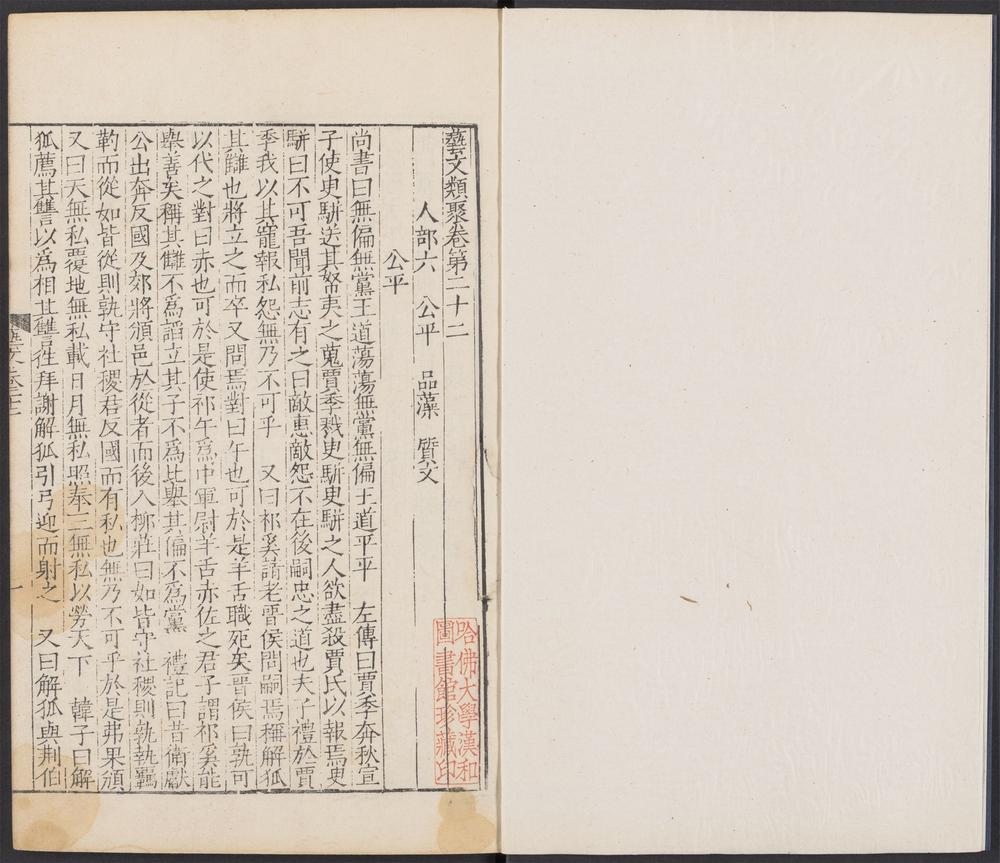 藝文類聚卷第二十二
人部六 公平 品藻 質文
公平
尚書曰無偏無黨王道蕩蕩無黨無偏王道平平 左傳曰賈季奔秋宣
子使史駢送其帑夷之蒐賈季戮史駢史駢之人欲盡殺賈氏以報焉史
駢曰不可吾聞前志有之曰敵惠敵怨不在後嗣忠之道也夫子禮於賈
季我以其寵報私怨無乃不可乎 又曰祁奚請老晋侯問嗣焉稱解狐
其讎也將立之而卒又問焉對曰午也可於是羊舌職死矣晋侯曰孰可
以代之對曰赤也可於是使祁午爲中軍尉羊舌赤佐之君子謂祁奚能
舉善矣稱其讎不爲謟立其子不爲比舉其偏不爲黨 禮記曰昔衛獻
公出奔反國及郊將頒邑於從者而後入柳莊曰如皆守社稷則孰執羈
靮而從如皆從則孰守社稷君反國而有私也無乃不可乎於是弗果頒
又曰天無私覆地無私載日月無私照奉三無私以勞天下 韓子曰解
狐薦其讐以爲相其讐往拜謝解狐引弓迎而射之 又曰解狐與荆伯
一
哈佛大學漢和
圖書館珍藏印